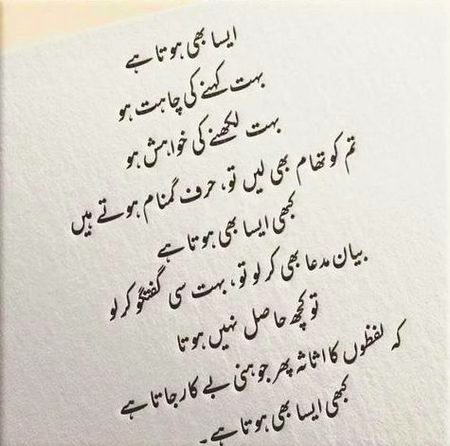 ایسا بھی ہوتا ہے
بہت کہنے کی چاہت ہو
بہت لکھنے کی خواہش ہو
تم کو تھام بھی لیں تو، حرف گمنام ہوتے ہیں
کبھی ایسا بھی ہوتا ہے
بیان مدعا بھی کر لو تو، بہت سی گفتگو کر لو
تو کچھ حاصل نہیں ہوتا
کہ لفظوں کا اثاثہ پھر جو ہنی بے کار جاتا ہے
کبھی ایسا بھی ہوتا ہے۔